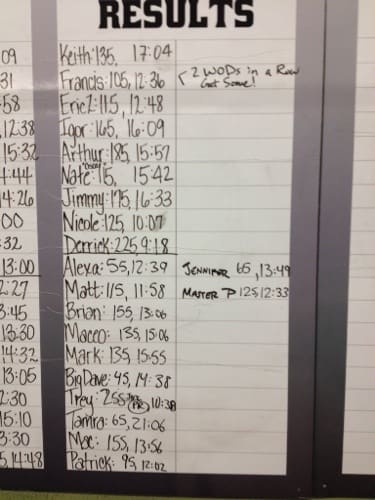 RESULTS
09
31
:58
12:38
15:32
4:44
14:26
:00
:32
13:00
2:27
3:45
13:30
14:32
13:05
2:30
15:10
3:30
5, 14:48
Keith: 135, 17:04
Francis: 105, 12:36
Eric Z: 115, 12:48
Igor: 165, 16:09
Arthur: 185, 15:57
Nate: 115, 15:42
Jimmy: 175, 16:33
Nicole: 125, 10:07
Derrick: 225, 9:18
Alexa: 55, 12:39
Matt: 115, 11:58
Brian: 155, 13:06
Macco: 135, 15:06
Mark: 135, 15:55
Big Dave: 95, 14:38
Trey: 255 10:38
Tamra: 65, 21:06
Mac: 155, 13:56
Patrick: 95, 12:02
2 WODs in a Row
Get Some!
JENNIFER 65, 13:49
MASTER P 125, 12:33